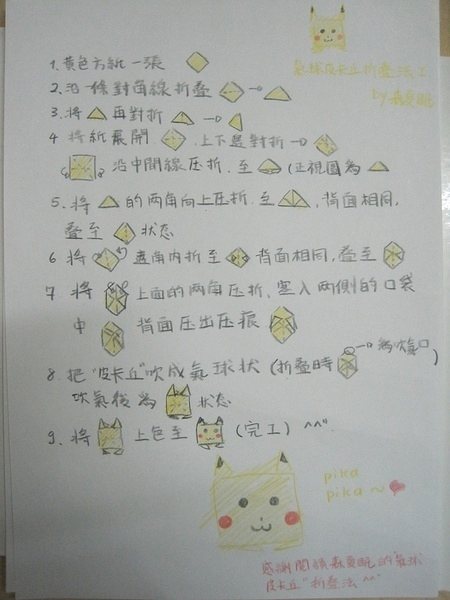 氣球皮卡丘折疊法工
by 森愛眠
1. 黃色方紙一張
2. 沿一條對角線折疊
3. 將 再對折
4 將紙展開, 上下邊對折
沿中間線壓折, 至 (正視圖為
5. 將 的兩角向上压折, 至 , 背面相同,
疊至 状态
6 將 邊角內折至 背面相同, 疊至
7 將 上面的两角压折, 塞入两側的口袋
中 背面压出压痕
8. 把"皮卡丘"吹成氣球狀 (折疊時 為吹氣口)
吹氣後為 状态
9. 將 上色至 (完工) ^^"
pika
pika ~
感謝閱讀森愛眠的"氣球
皮卡丘"折疊法 ^^